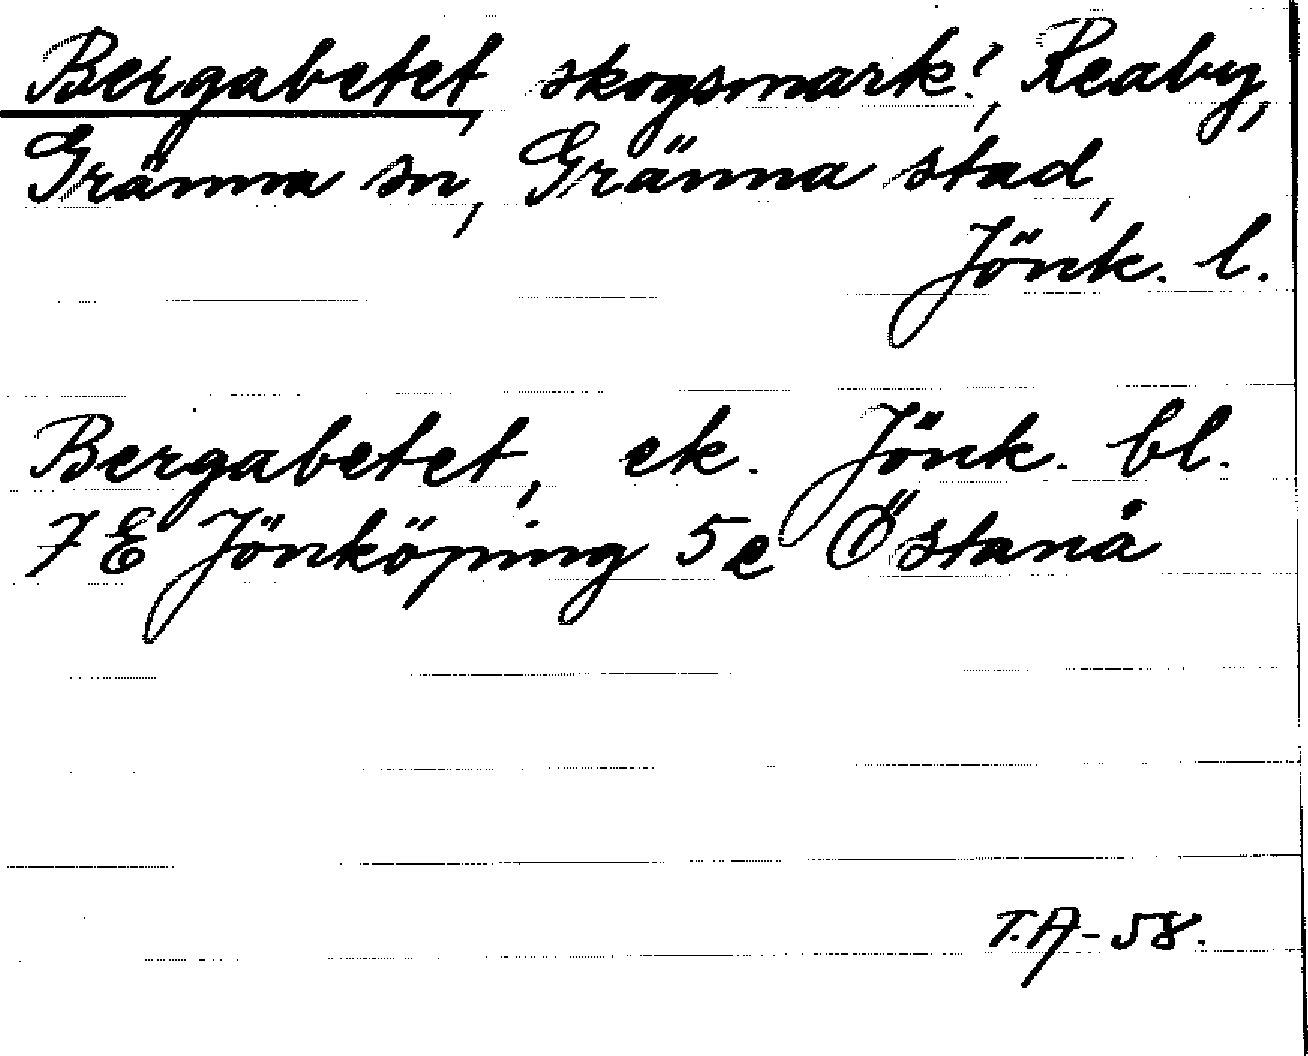 Bergabetet, skogsmark!, Reaby,
Gränna sn, Gränna stad,
Jönk. l.
Bergabetet, ek. Jönk. bl.
7 E Jönköping 5e Östanå
T.A-58.